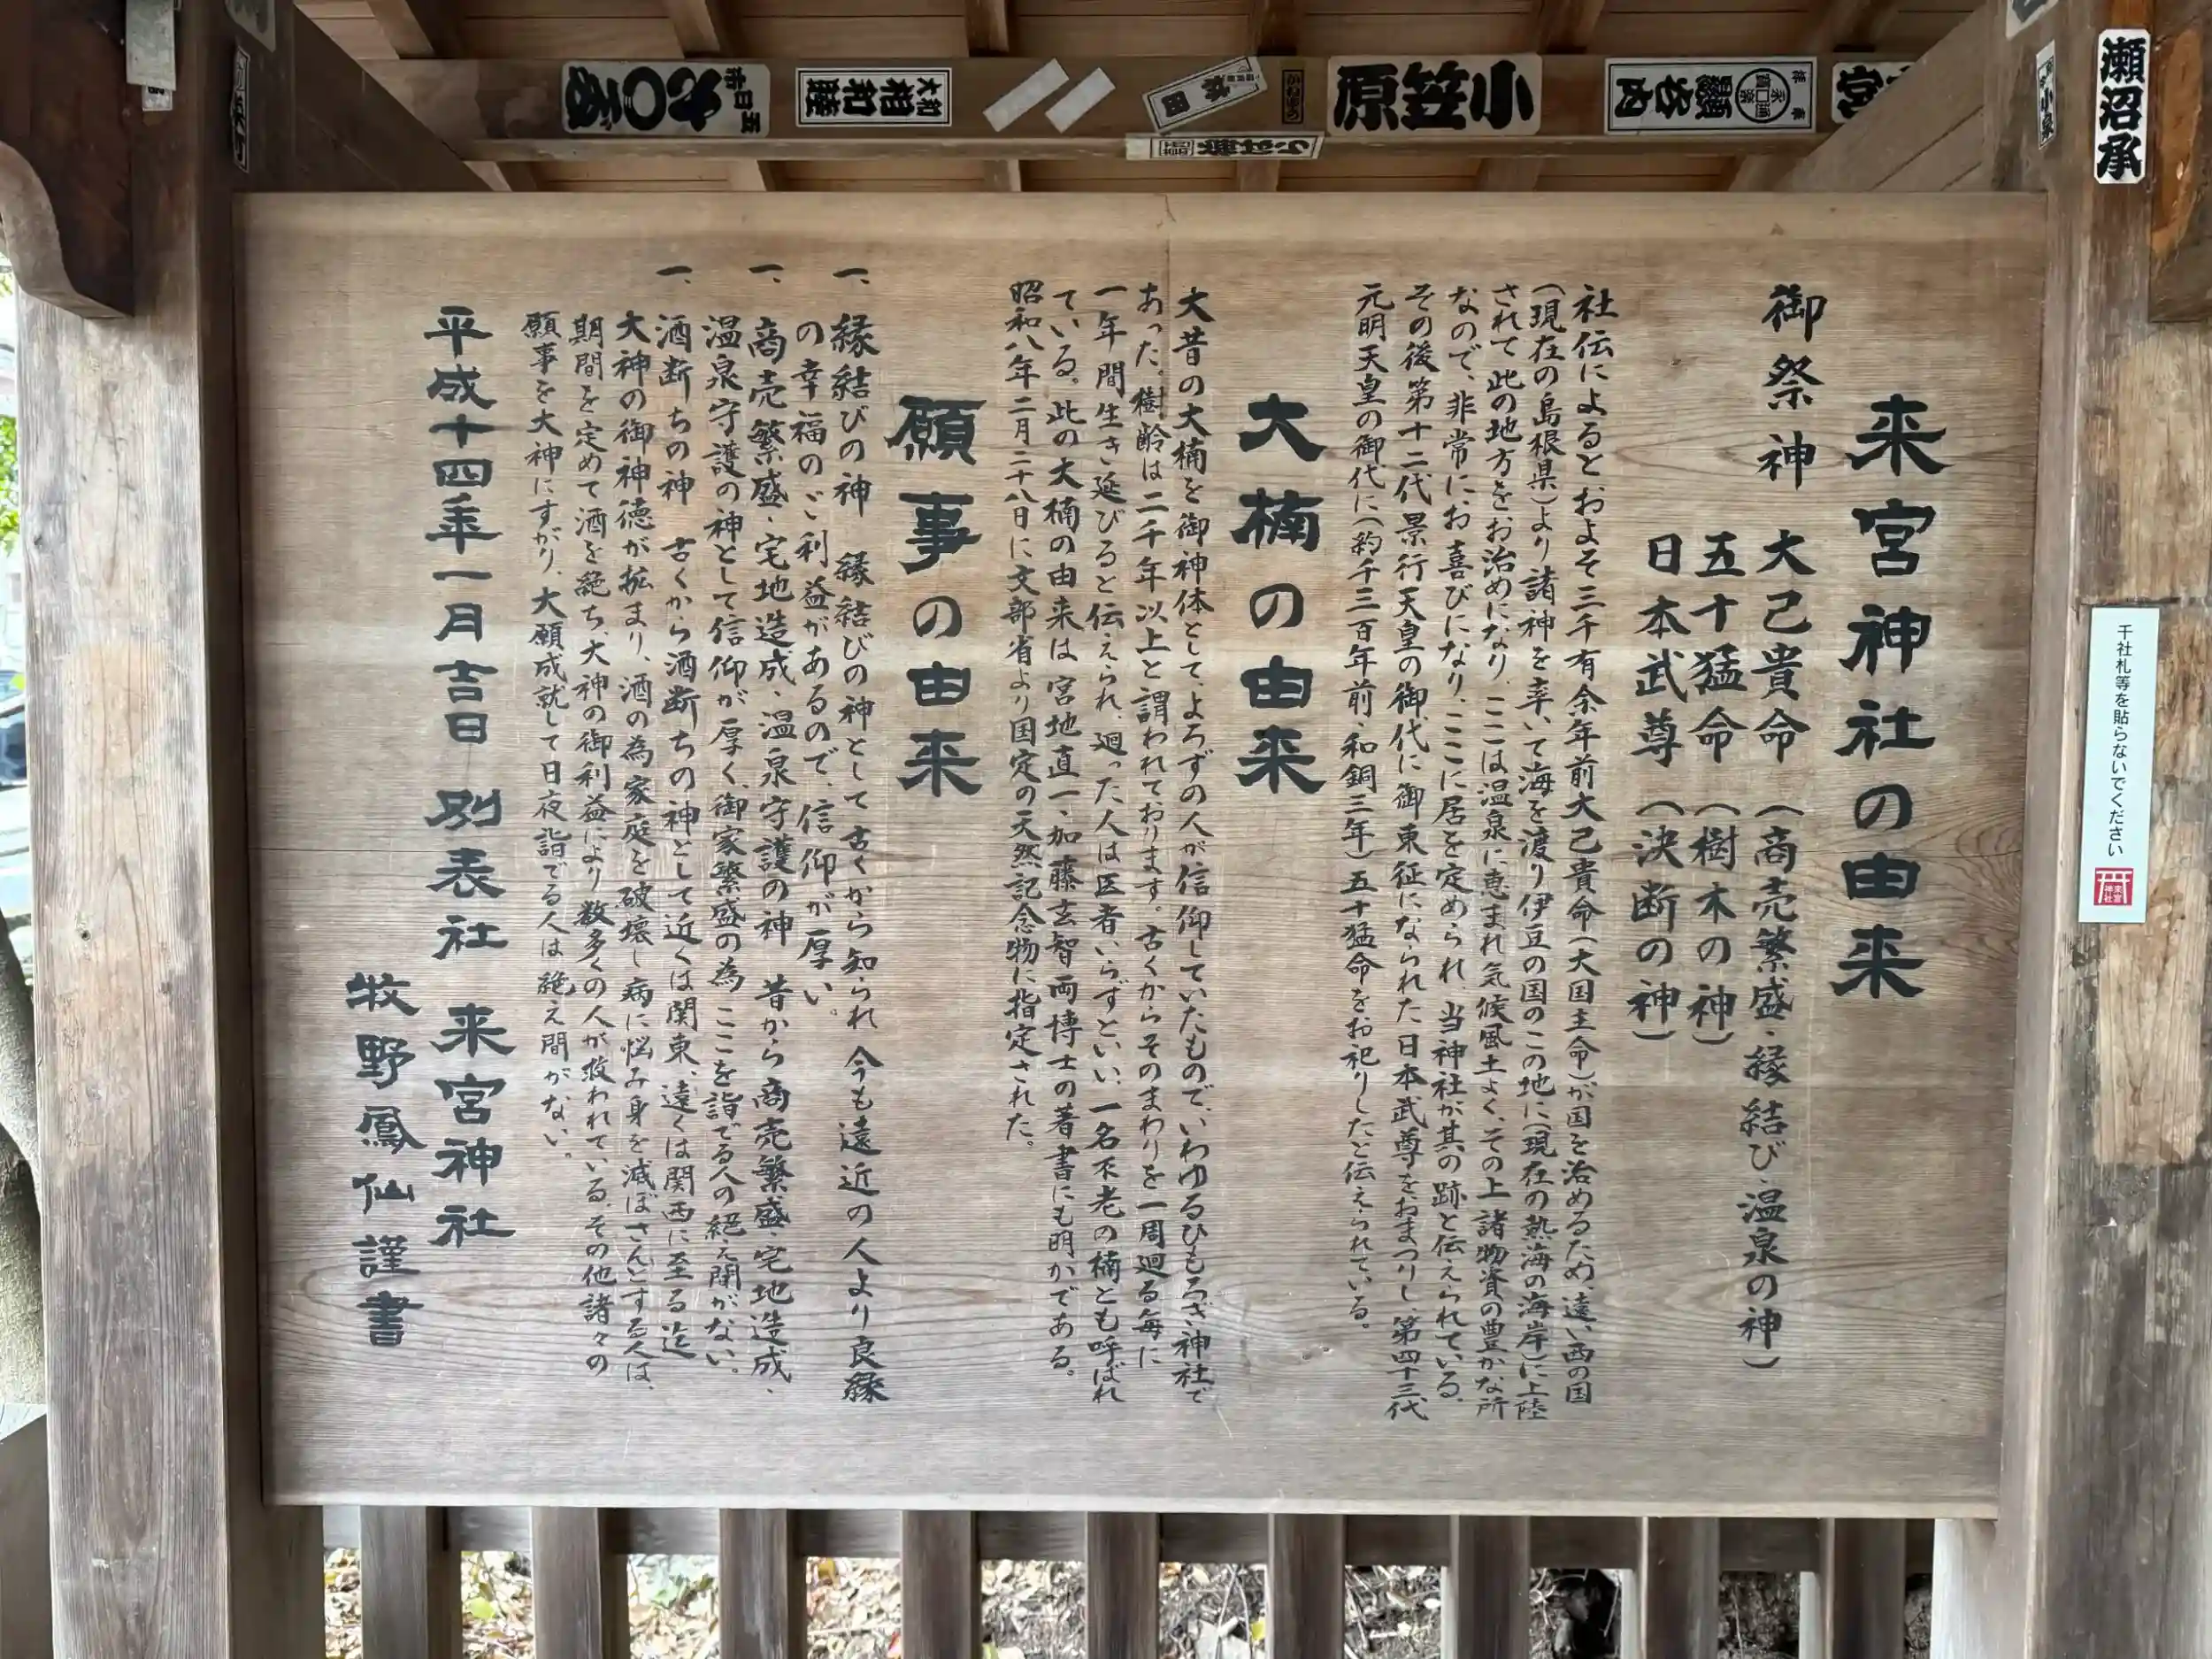 来宮神社の由来
御祭神 大己貴命 (商売繁盛・縁結び・温泉の神)
五十猛命 (樹木の神)
日本武尊 (決断の神)
社伝によるとおよそ三千有余年前大己貴命(大国主命)が国を治めるため、遠い西の国
(現在の島根県)より諸神を率いて海を渡り伊豆の国のこの地に(現在の熱海の海岸)に上陸
されて此の地方をお治めになり、ここは温泉に恵まれ気候風土よく、その上諸物資の豊かな所
なので、非常にお喜びになり、ここに居を定められ、当神社が其の跡と伝えられている。
その後第十二代景行天皇の御代に御東征になられた日本武尊をおまつりし、第四十三代
元明天皇の御代に(約千三百年前・和銅三年)五十猛命をお祀りしたと伝えられている。
大楠の由来
大昔の大楠を御神体として、よろずの人が信仰していたもので、いわゆるひもろぎ神社で
あった。樹齢は二千年以上と謂われております。古くからそのまわりを一周廻る毎に
一年間生き延びると伝えられ、廻った人は医者いらずといい、一名不老の楠とも呼ばれ
ている。此の大楠の由来は宮地直一、加藤玄智両博士の著書にも明かである。
昭和八年二月二十八日に文部省より国定の天然記念物に指定された。
願事の由来
一、縁結びの神 縁結びの神として古くから知られ 今も遠近の人より良縁
の幸福のご利益があるので、信仰が厚い。
一、商売繁盛・宅地造成・温泉守護の神 昔から商売繁盛・宅地造成・
温泉守護の神として信仰が厚く、御家繁盛の為 ここを詣でる人の絶え間がない。
一、酒断ちの神 古くから酒断ちの神として近くは関東、遠くは関西に至る迄
大神の御神徳が拡まり、酒の為家庭を破壊し病に悩み身を滅ぼさんとする人は、
期間を定めて酒を絶ち、大神の御利益により数多くの人が救われている。その他諸々の
願事を大神にすがり、大願成就して日夜詣でる人は絶え間がない。
平成十四年一月吉日 別表社 来宮神社
牧野鳳仙謹書
千社札等を貼らないでください
来宮神社
瀬沼承
小笠原
大和
相和睦
小泉